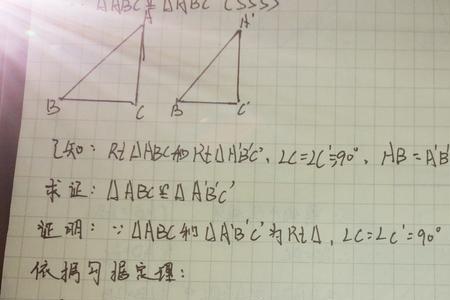 ∴ △ABC≌△A'B'C' (SSS)
A A'
B C B' C'
已知: Rt△ABC和Rt△A'B'C', ∠C=∠C'=90°, AB=A'B'
求证: △ABC≌△A'B'C'
证明: ∵ △ABC和△A'B'C'为Rt△, ∠C=∠C'=90°
依据勾股定理: